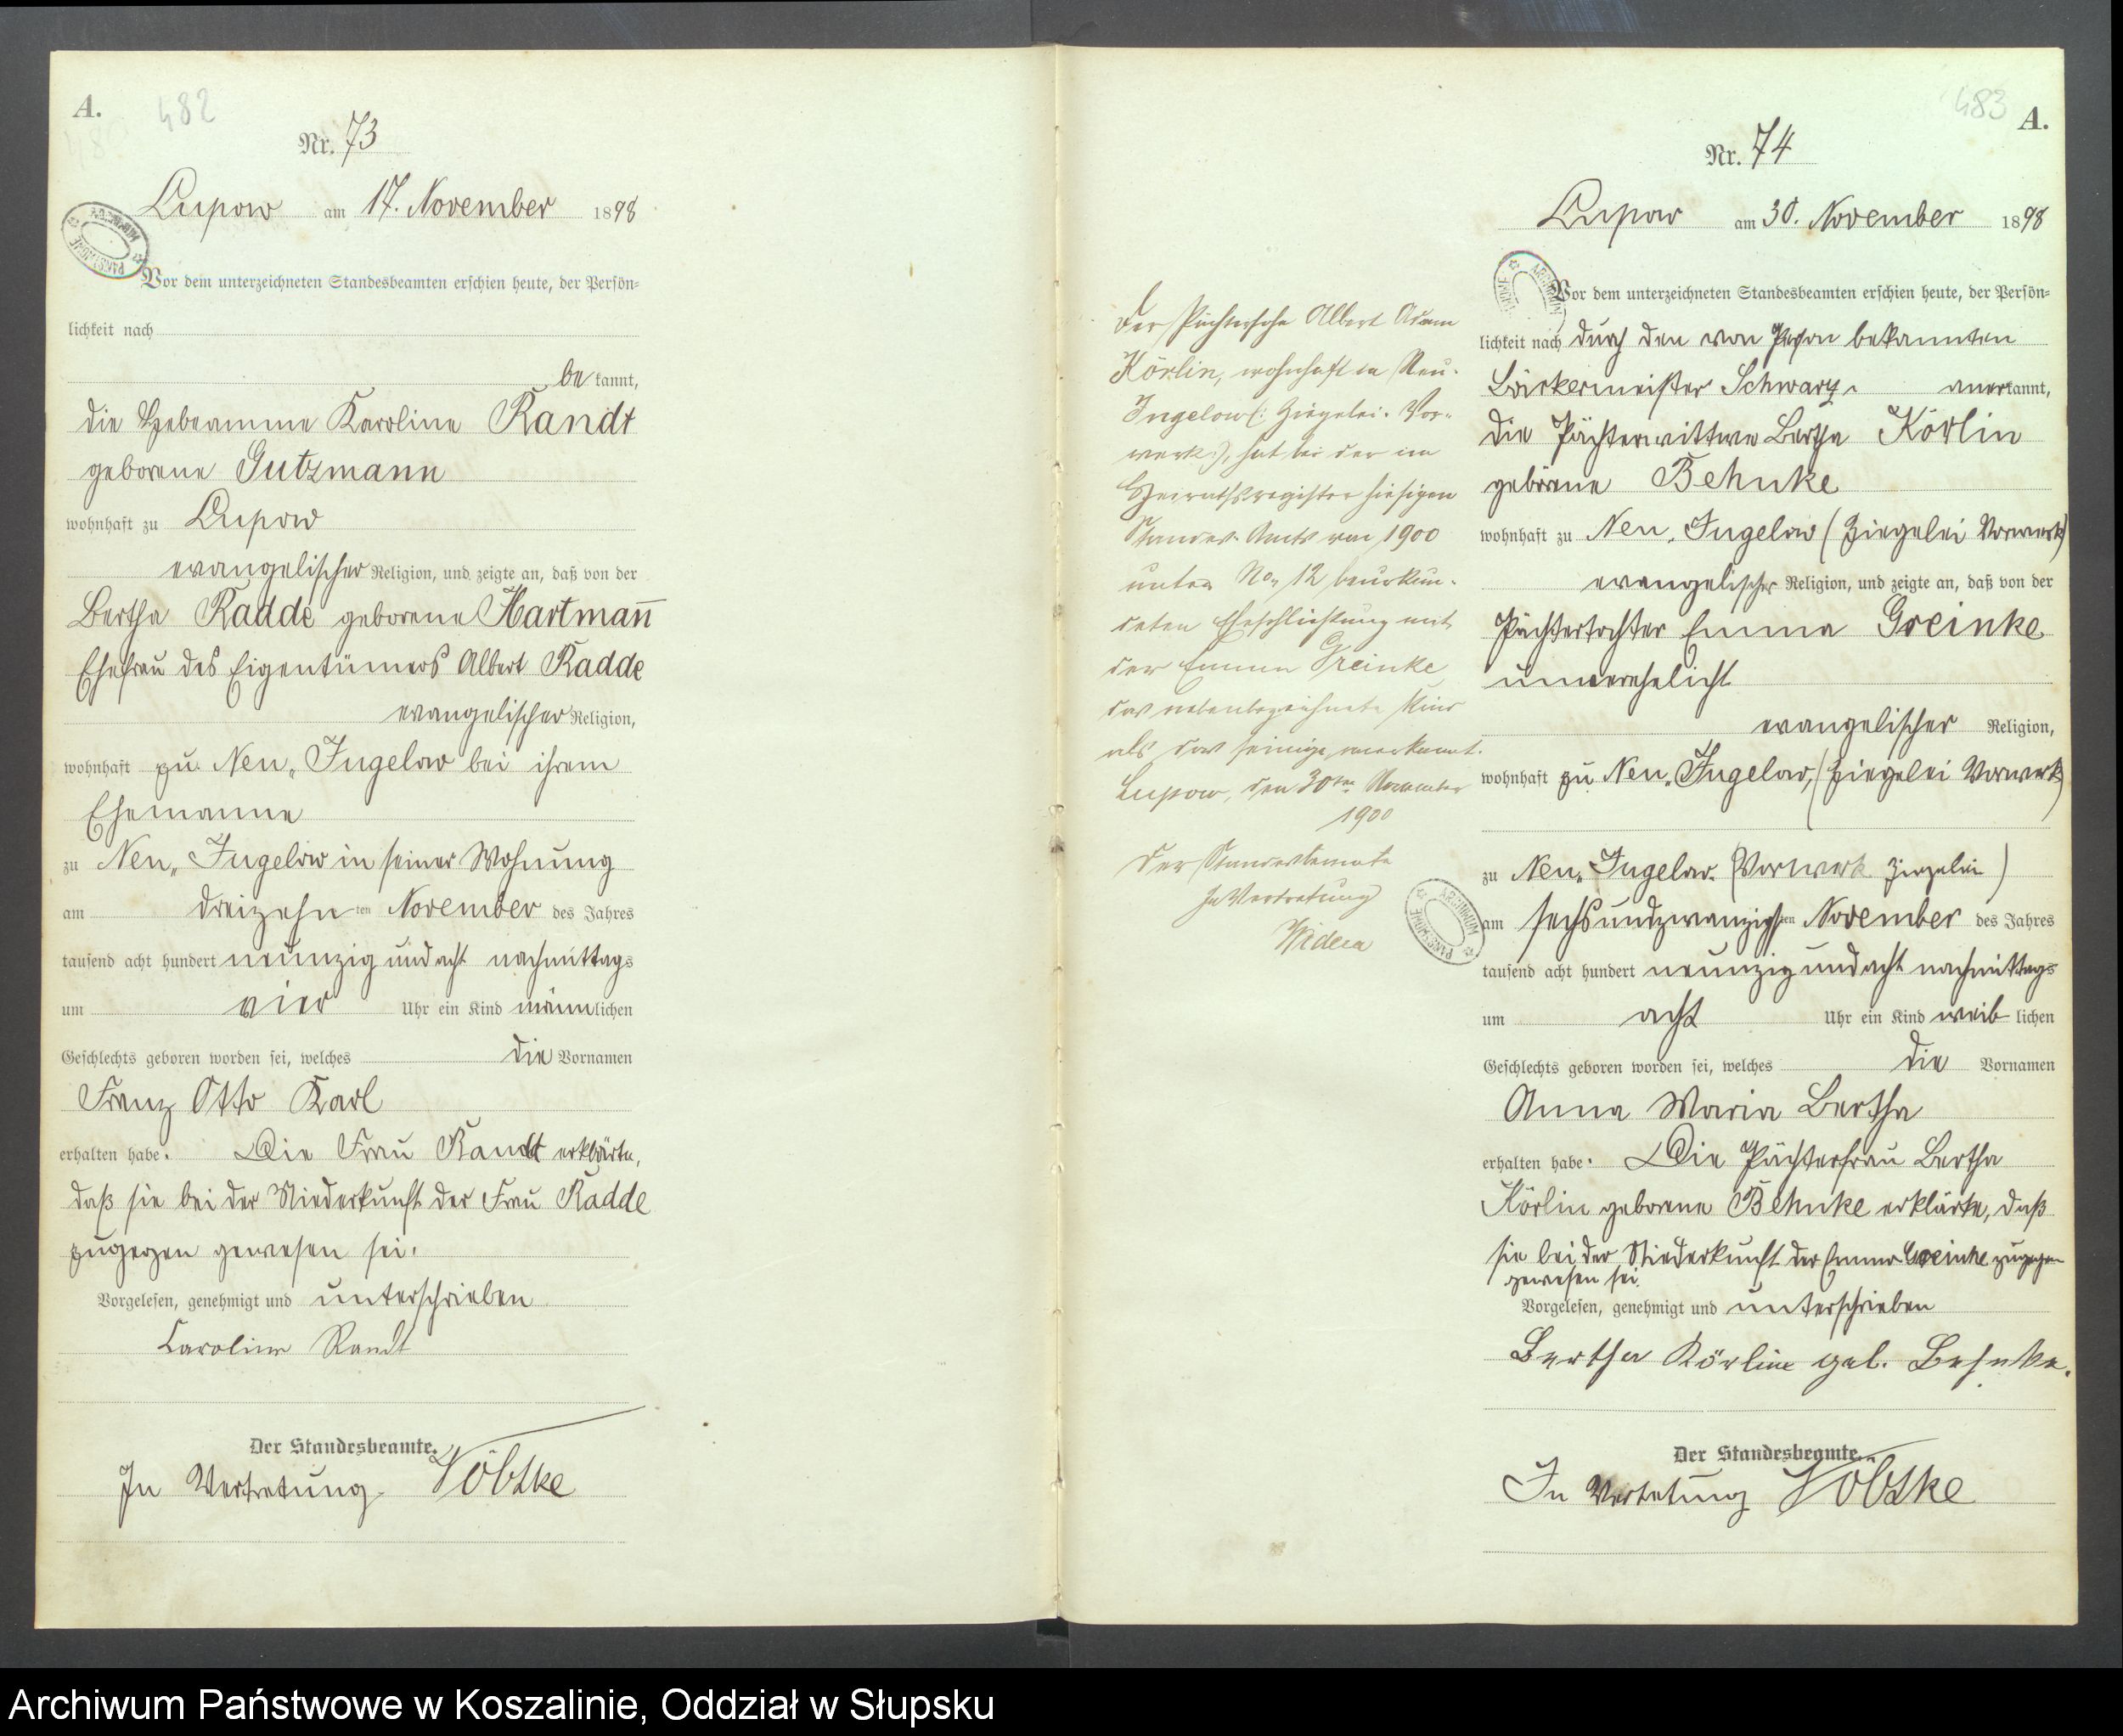 A.
482
Nr. 73
Lupow am 17. November 1898
Vor dem unterzeichneten Standesbeamten erschien heute, der Persön-
lichkeit nach
be kannt,
die Hebeamme Karoline Randt
geborene Gutzmann
wohnhaft zu Lupow
evangelischer Religion, und zeigte an, daß von der
Bertha Radde geborene Hartmann
Ehefrau des Eigentümers Albert Radde
evangelischer Religion,
wohnhaft zu Neu-Jugelow bei ihrem
Ehemanne
zu Neu-Jugelow in seiner Wohnung
am dreizehn ten November des Jahres
tausend acht hundert neunzig und acht nachmittags
um vier Uhr ein Kind männlichen
Geschlechts geboren worden sei, welches die Vornamen
Franz Otto Karl
erhalten habe. Die Frau Randt erklärte,
daß sie bei der Niederkunft der Frau Radde
zugegen gewesen sei.
Vorgelesen, genehmigt und unterschrieben
Caroline Randt
Der Standesbeamte.
In Vertretung
Der Pächtersohn Albert Adam
Körlin, wohnhaft in Neu-
Jugelow (: Ziegelei-Vor-
werk :), hat bei der im
Heirathsregister hiesigen
Standes-Amts von 1900
unter No. 12 beurkun-
deten Eheschließung mit
der Emma Greinke
das nebenbezeichnete Kind
als das seinige anerkannt.
Lupow, den 30ten November
1900
Der Standesbeamte
In Vertretung
483
A.
Nr. 74
Lupow am 30. November 1898
Vor dem unterzeichneten Standesbeamten erschien heute, der Persön-
lichkeit nach durch den von Person bekannten
Bäckermeister Schwarz anerkannt,
die Pächterwittwe Bertha Körlin
geborene Behnke
wohnhaft zu Neu-Jugelow (Ziegelei Vorwerk)
evangelischer Religion, und zeigte an, daß von der
Pächtertochter Emma Greinke
unverehelicht
evangelischer Religion,
wohnhaft zu Neu-Jugelow, (Ziegelei Vorwerk)
zu Neu-Jugelow (Vorwerk Ziegelei)
am sechsundzwanzigsten November des Jahres
tausend acht hundert neunzig und acht nachmittags
um acht Uhr ein Kind weib lichen
Geschlechts geboren worden sei, welches die Vornamen
Anna Maria Bertha
erhalten habe. Die Pächterfrau Bertha
Körlin geborene Behnke erklärte, daß
sie bei der Niederkunft der Emma Greinke zugegen
gewesen sei.
Vorgelesen, genehmigt und unterschrieben
Bertha Körlin geb. Behnke.
Der Standesbeamte.
In Vertretung
Archiwum Państwowe w Koszalinie, Oddział w Słupsku